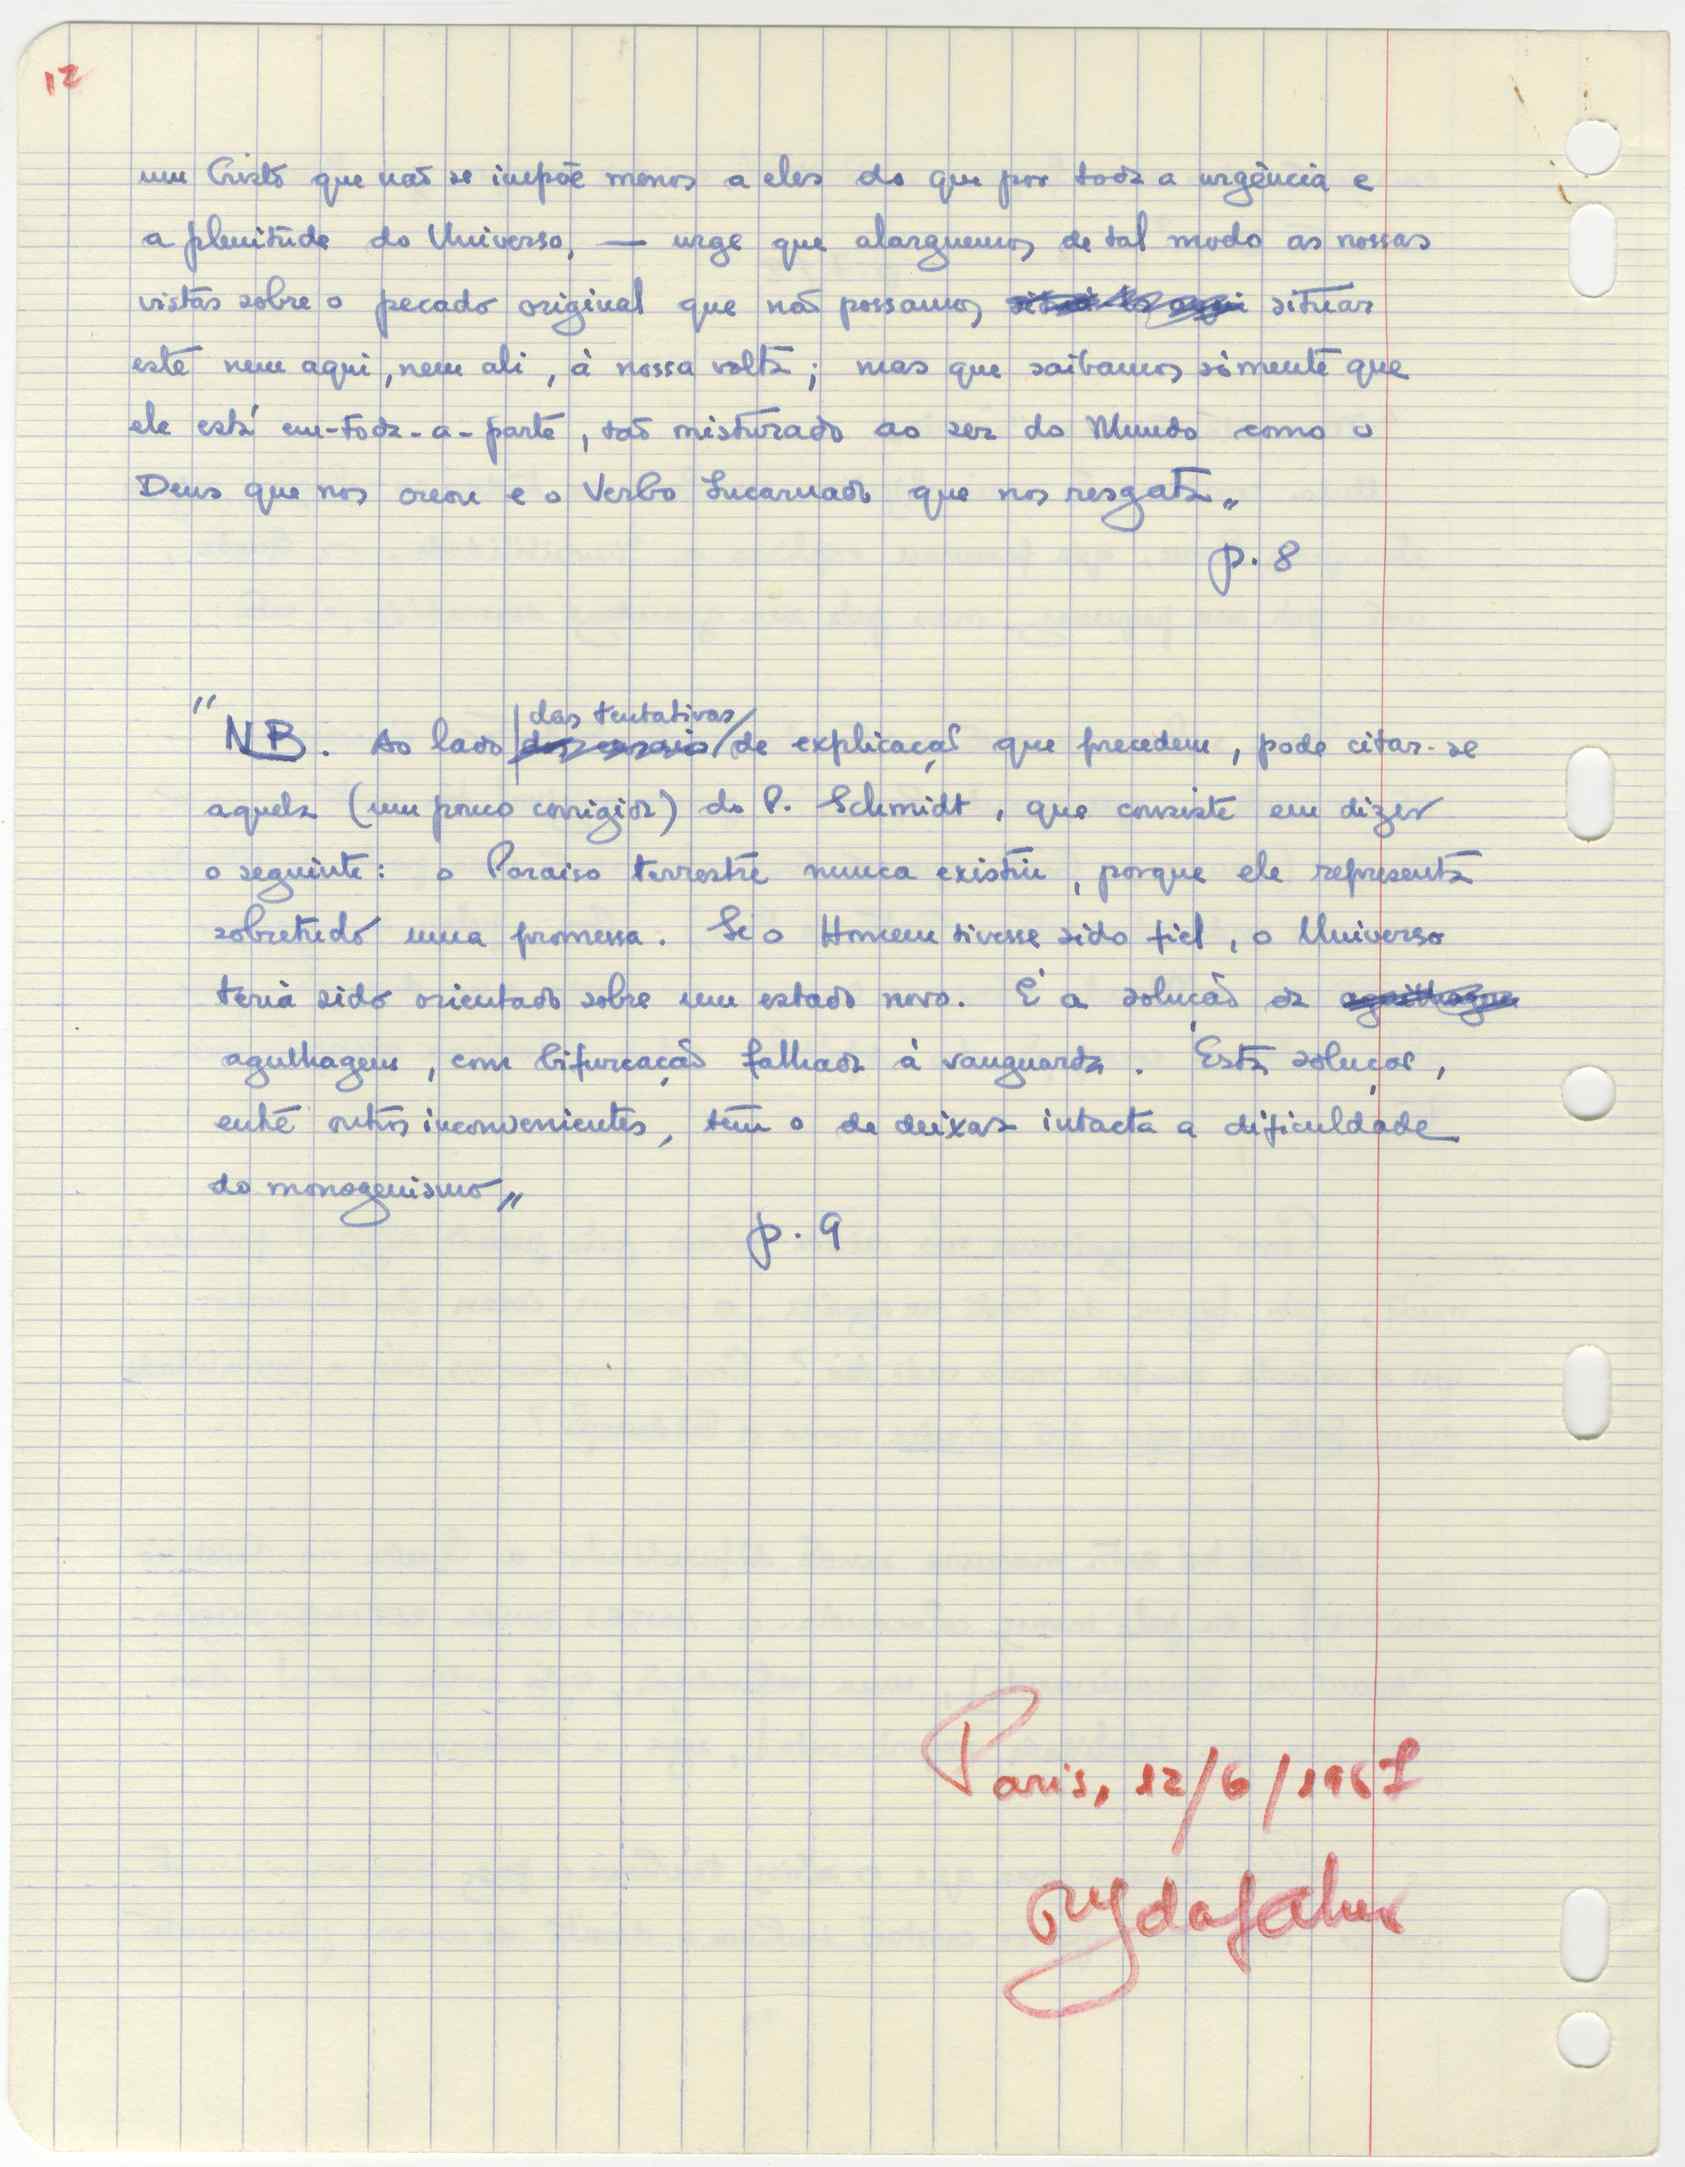 12
um Cristo que não se impõe menos a eles do que por toda a urgência e
a plenitude do Universo, — urge que alarguemos de tal modo as nossas
vistas sobre o pecado original que não possamos situar
este nem aqui, nem ali, à nossa volta; mas que saibamos sòmente que
ele está em-toda-a-parte, tão misturado ao ser do Mundo como o
Deus que nos creou e o Verbo Incarnado que nos resgata„
p. 8
das tentativas
"NB. Ao lado de explicação que precedem, pode citar-se
aquela (um pouco corrigida) do P. Schmidt, que consiste em dizer
o seguinte: o Paraiso terrestre nunca existiu, porque ele representa
sobretudo uma promessa. Se o Homem tivesse sido fiel, o Universo
teria sido orientado sobre um estado novo. É a solução da
agulhagem, com bifurcação falhada à vanguarda. Esta solução,
entre outros inconvenientes, tem o de deixar intacta a dificuldade
do monogenismo„
p. 9
Paris, 12/6/1967